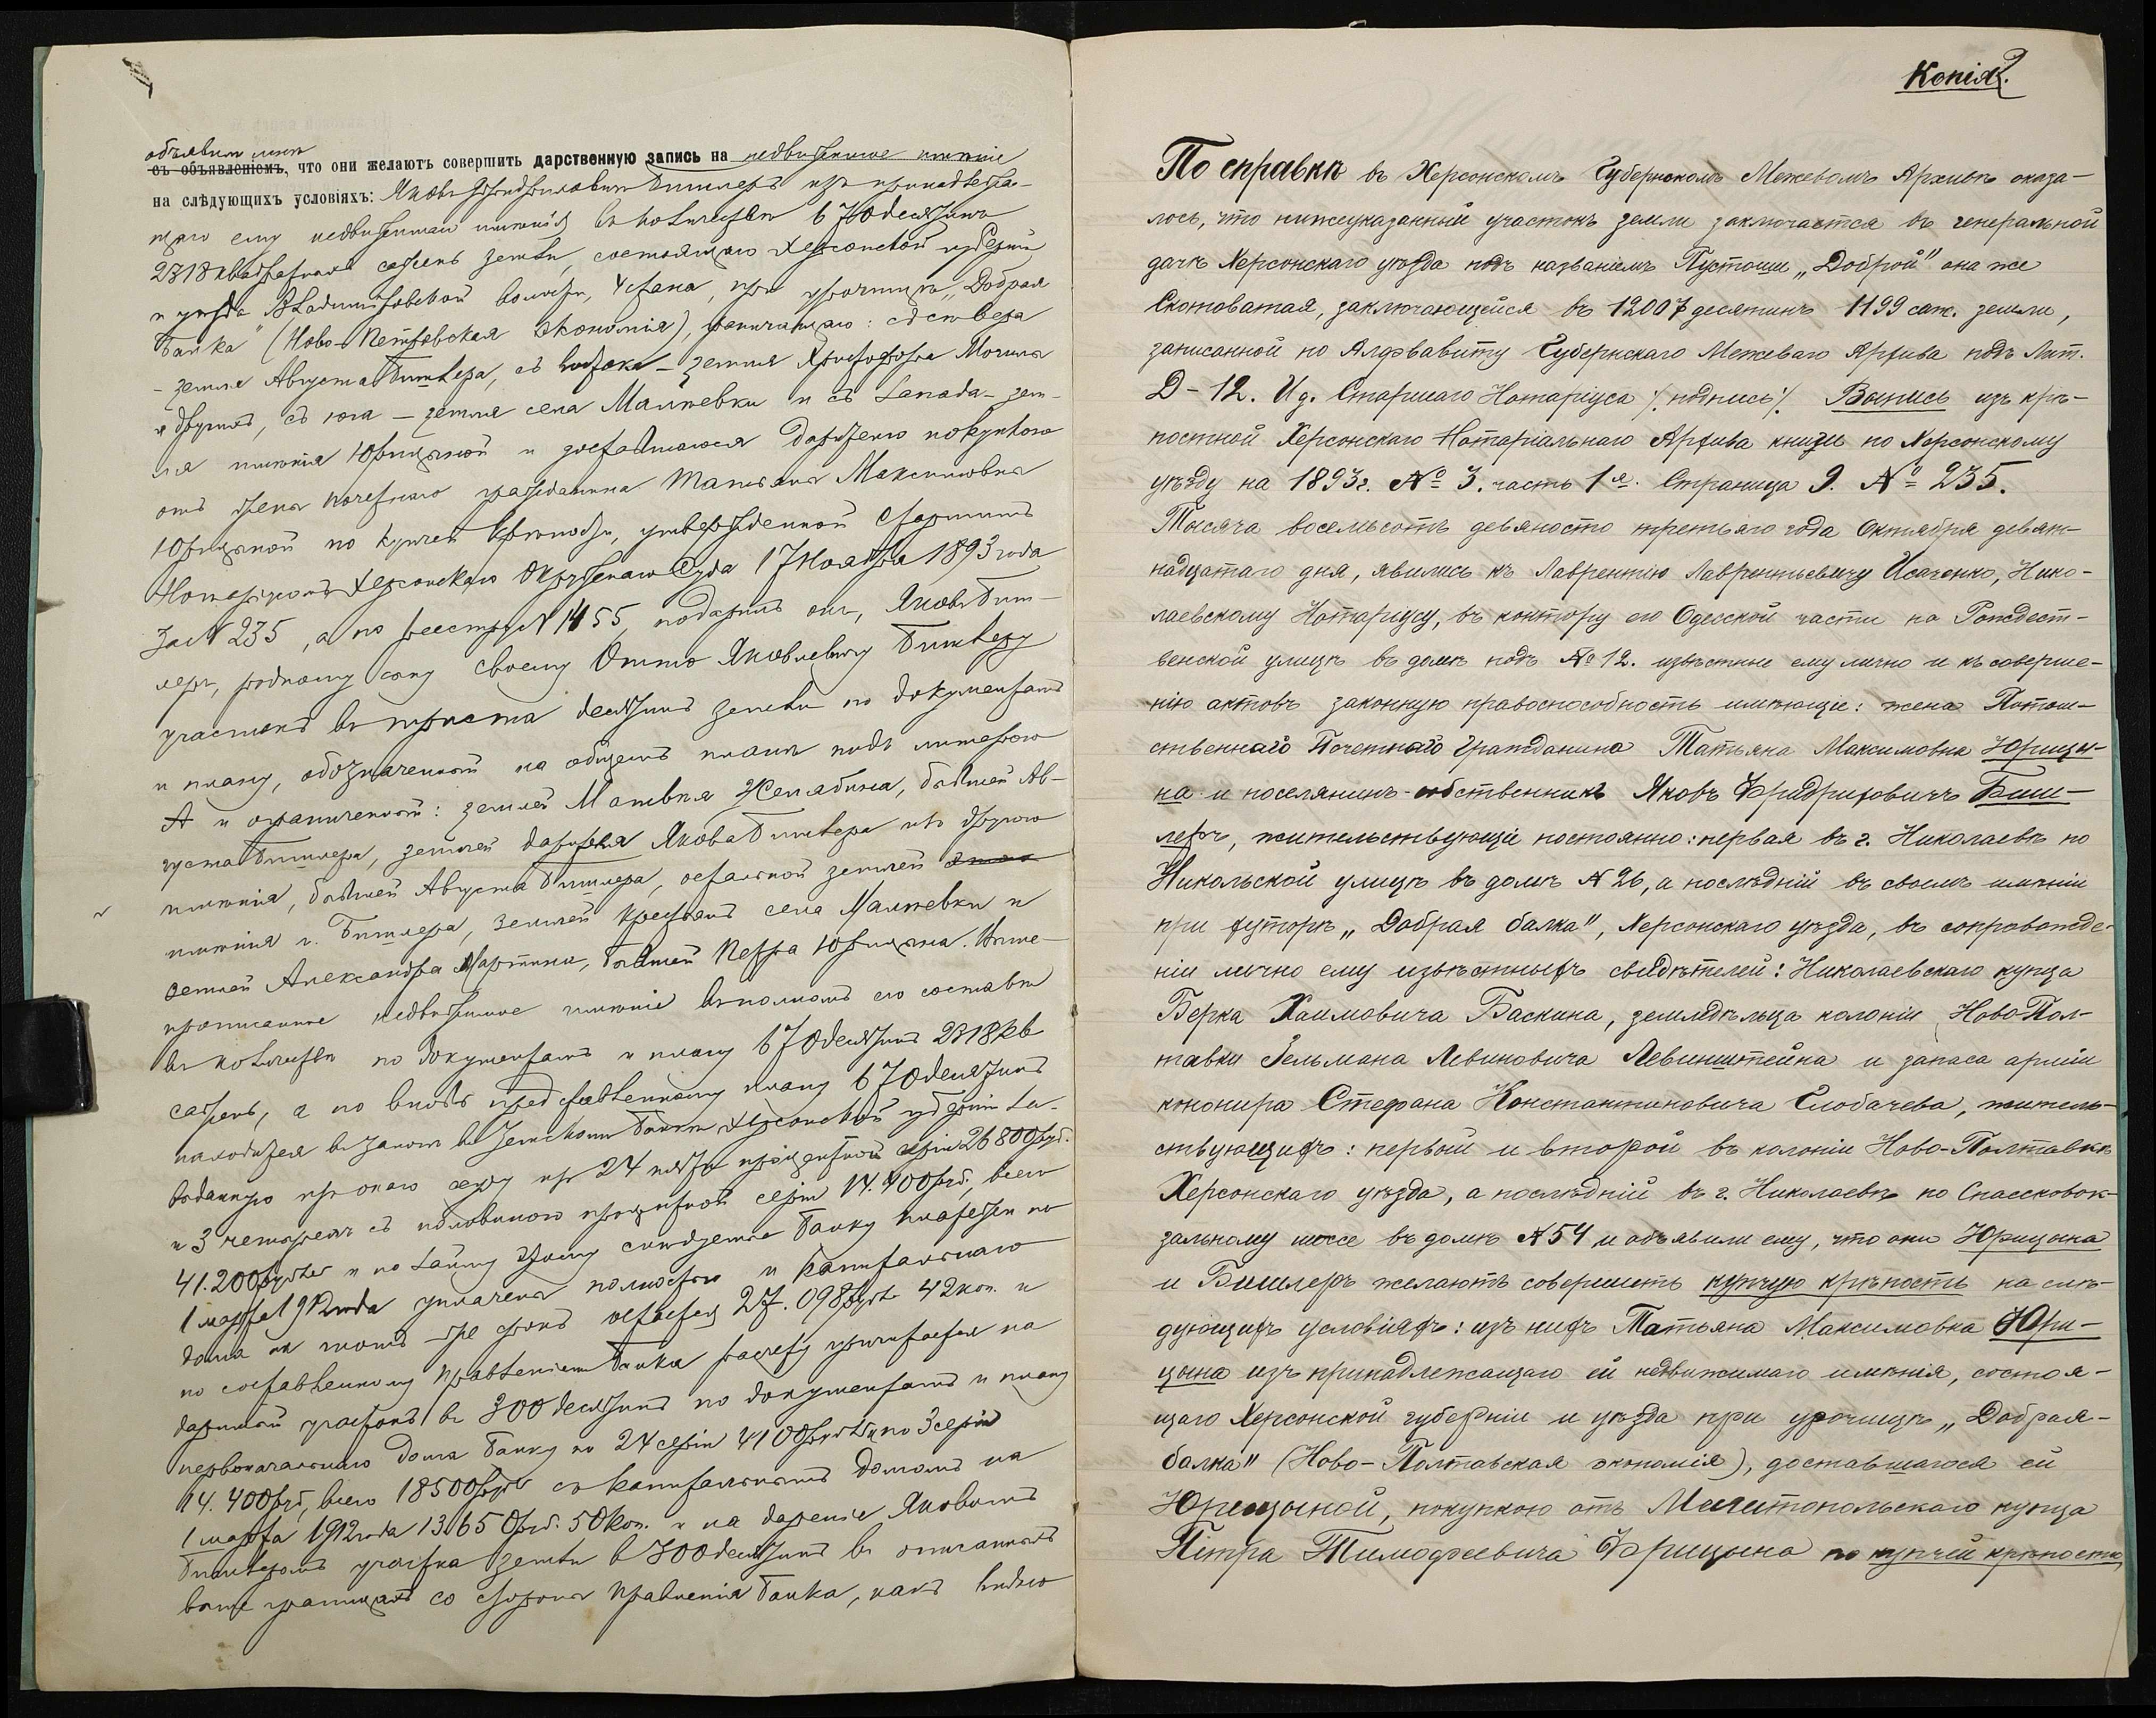 объявили мнѣ
съ объявленіемъ, что они желаютъ совершить дарственную запись на недвижимое имѣніе
на слѣдующихъ условіяхъ: Яковъ Фридриховичъ Бишлеръ изъ принадлежа-
щаго ему недвижимаго имѣнія въ количествѣ 670 десятинъ
2318 квадратныхъ сажень земли, состоящаго Херсонской губерніи
и уѣзда Владиміровской волости, 4 стана, при урочищѣ „Добрая
Балка" (Ново-Петровская экономія), граничащаго: съ сѣвера
- земля Августа Бишлера, съ востока - земля Христофора Мочилы
и другихъ, съ юга - земля села Малѣевки и съ запада - зем-
ля имѣнія Юрицыной и доставшагося дарителю покупкою
отъ жены почетнаго гражданина Татьяны Максимовны
Юрицыной по купчей крѣпости, утвержденной Старшимъ
Нотаріусомъ Херсонскаго Окружнаго Суда 17 Ноября 1893 года
за № 235, а по реестру № 1455, подарилъ онъ, Яковъ Биш-
леръ, родному сыну своему Отто Яковлевичу Бишлеру
участокъ въ триста десятинъ земли по документамъ
и плану, обозначенный на общемъ планѣ подъ литерою
А и ограниченный: землей Матвѣя Желябина, бывшей Ав-
густа Бишлера, землей дарителя Якова Бишлера изъ другого
имѣнія, бывшей Августа Бишлера, остальной землей этого
имѣнія г. Бишлера, землей крестьянъ села Малѣевки и
землей Александра Мартини, бывшей Петра Юрицына. Выше-
прописанное недвижимое имѣніе въ полномъ его составѣ
въ количествѣ по документамъ и плану 670 десятинъ 2318 кв
сажень, а по вновь представленному плану 670 десятинъ
находится въ залогѣ въ Земскомъ Банкѣ Херсонской губерніи за
выданную изъ онаго ссуду изъ 24 пяти процентной серіи 26800 руб.
и 3 четырехъ съ половиною процентной серіи 14.400 руб., всего
41.200 рублей и по займу этому слѣдуемые Банку платежи по
1 марта 1912 года уплачены полностью и капитальнаго
долга на тотъ же срокъ остается 27.098 руб. 42 коп. и
по составленному Правленіемъ Банка расчету причитается на
даримый участокъ въ 300 десятинъ по документамъ и плану
первоначальнаго долга Банку по 24 серіи 4100 руб. и по 3 серіи
14.400 руб, всего 18500 руб. съ капитальнымъ долгомъ на
1 марта 1912 года 13.650 руб. 50 коп. и на дареніе Яковомъ
Бишлеромъ участка земли въ 300 десятинъ въ описанныхъ
выше границахъ со стороны Правленія Банка, какъ видно
Копія.
2
По справкѣ въ Херсонскомъ Губернскомъ Межевомъ Архивѣ оказа-
лось, что нижеуказанный участокъ земли заключается въ генеральной
дачѣ Херсонскаго уѣзда подъ названіемъ Пустоши „Доброй" она же
Скотоватая, заключающейся въ 12007 десятинъ 1199 саж. земли,
записанной по Алфавиту Губернскаго Межеваго Архива подъ Лит.
Д-12. И д. Старшаго Нотаріуса /. подпись/. Выпись изъ крѣ-
постной Херсонскаго Нотаріальнаго Архива книги по Херсонскому
уѣзду на 1893 г. № 3. часть 1я. Страница 9. № 235.
Тысяча восемьсотъ девяносто третьяго года Октября девят-
надцатаго дня, явились къ Лаврентію Лаврентьевичу Исаченко, Нико-
лаевскому Нотаріусу, въ контору его Одесской части на Рождест-
венской улицѣ въ домѣ подъ № 12. извѣстные ему лично и къ соверше-
нію актовъ законную правоспособность имѣющіе: жена Потом-
ственнаго Почетнаго Гражданина Татьяна Максимовна Юрицы-
на и поселянинъ-собственникъ Яковъ Фридриховичъ Биш-
леръ, жительствующіе постоянно: первая въ г. Николаевѣ по
Никольской улицѣ въ домѣ № 26, а послѣдній въ своемъ имѣніи
при хуторѣ „Добрая балка", Херсонскаго уѣзда, въ сопровожде-
ніи лично ему извѣстныхъ свидѣтелей: Николаевскаго купца
Берка Хаимовича Баскина, земледѣльца колоніи Ново-Пол-
тавки Гельмана Левиновича Левинштейна и запаса арміи
канонира Стефана Константиновича Слобачева, житель-
ствующихъ: первый и второй въ колоніи Ново-Полтавкѣ
Херсонскаго уѣзда, а послѣдній въ г. Николаевѣ по Спассковок-
зальному шоссе въ домѣ № 54 и объявили ему, что они Юрицына
и Бишлеръ желаютъ совершить купчую крѣпость на слѣ-
дующихъ условіяхъ: изъ нихъ Татьяна Максимовна Юри-
цына изъ принадлежащаго ей недвижимаго имѣнія, состоя-
щаго Херсонской губерніи и уѣзда при урочищѣ „Добрая-
балка" (Ново-Полтавская экономія), доставшагося ей
Юрицыной, покупкою отъ Мелитопольскаго купца
Петра Тимофеевича Юрицына по купчей крѣпости,